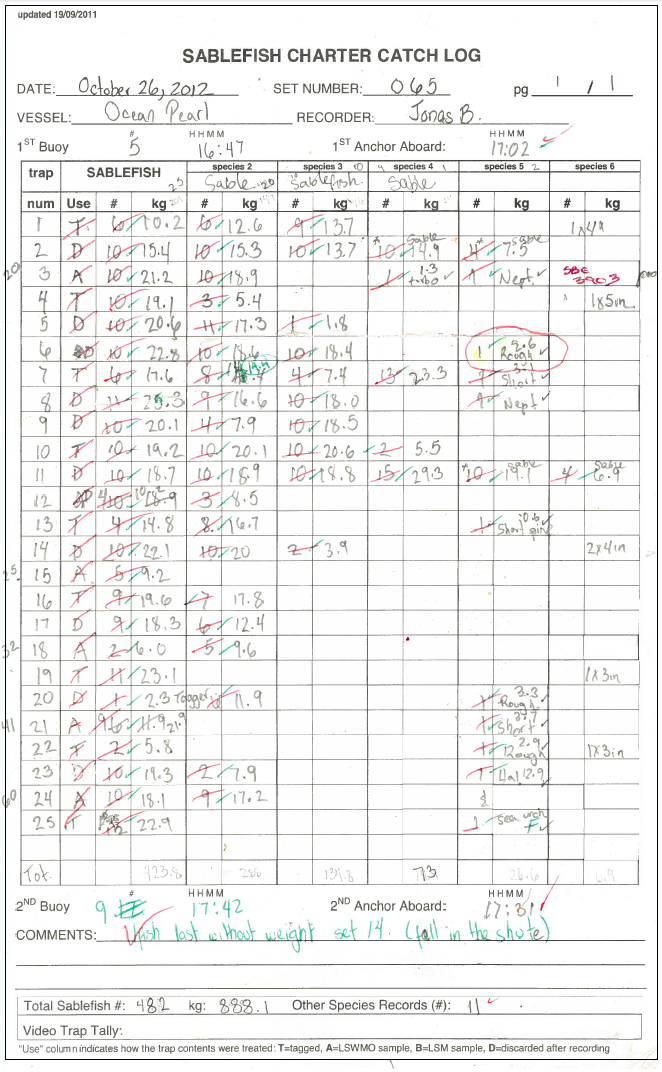 updated 19/09/2011
SABLEFISH CHARTER CATCH LOG
DATE: October 26, 2012 SET NUMBER: 065 pg 1 / 1
VESSEL: Ocean Pearl RECORDER: Jonas B.
# HHMM HHMM
1ST Buoy 5 16:47 1ST Anchor Aboard: 17:02
trap SABLEFISH species 2 species 3 species 4 species 5 species 6
25 Sable Sablefish Sable
num Use # kg # kg # kg # kg # kg # kg
1 T 6 10.2 6 12.6 9 13.7 1x4"
2 D 10 15.4 10 15.3 10 13.7 10 Sable 14.9 4 Sable 7.5
20 3 A 10 21.2 10 18.9 1 1.3 turbo 1 Nept. SBE 3903
4 T 10 19.1 3 5.4 1x5in
5 D 10 20.6 11 17.3 1 1.8
6 D 10 22.8 10 18.6 10 18.4 1 2.6 Rough
7 T 6 17.6 8 4 7.4 13 23.3 Short
8 D 11 25.3 9 16.6 10 18.0 1 Nept
9 D 10 20.1 4 7.9 10 18.5
10 T 10 19.2 10 20.1 10 20.6 2 5.5
11 D 10 18.7 10 18.9 10 18.8 15 29.3 10 Sable 19.1 4 Sable 6.9
12 10 18.9 3 8.5
13 T 4 14.8 8 16.7 1 Short
14 D 10 22.1 10 20 2 3.9 2x4in
25 15 A 5 9.2
16 T 9 19.6 7 17.8
17 D 9 18.3 6 12.4
32 18 A 2 6.0 5 9.6
19 T 11 23.1 1x3in
20 D 1 2.3 11.9 1 3.3 Rough
41 21 A 21.9 1 Short
22 T 2 5.8 1 2.9 Rough 1x3in
23 D 10 19.3 2 7.9 1 Hal 12.9
60 24 A 10 18.1 9 17.2
25 T 22.9 1 sea urch
Tot. 423.8 288 134.8 73 26.6 6.9
# HHMM HHMM
2ND Buoy 9 17:42 2ND Anchor Aboard: 17:31
COMMENTS: fish lost without weight set 14. (fall in the shute)
Total Sablefish #: 482 kg: 888.1 Other Species Records (#): 11
Video Trap Tally:
"Use" column indicates how the trap contents were treated: T=tagged, A=LSWMO sample, B=LSM sample, D=discarded after recording